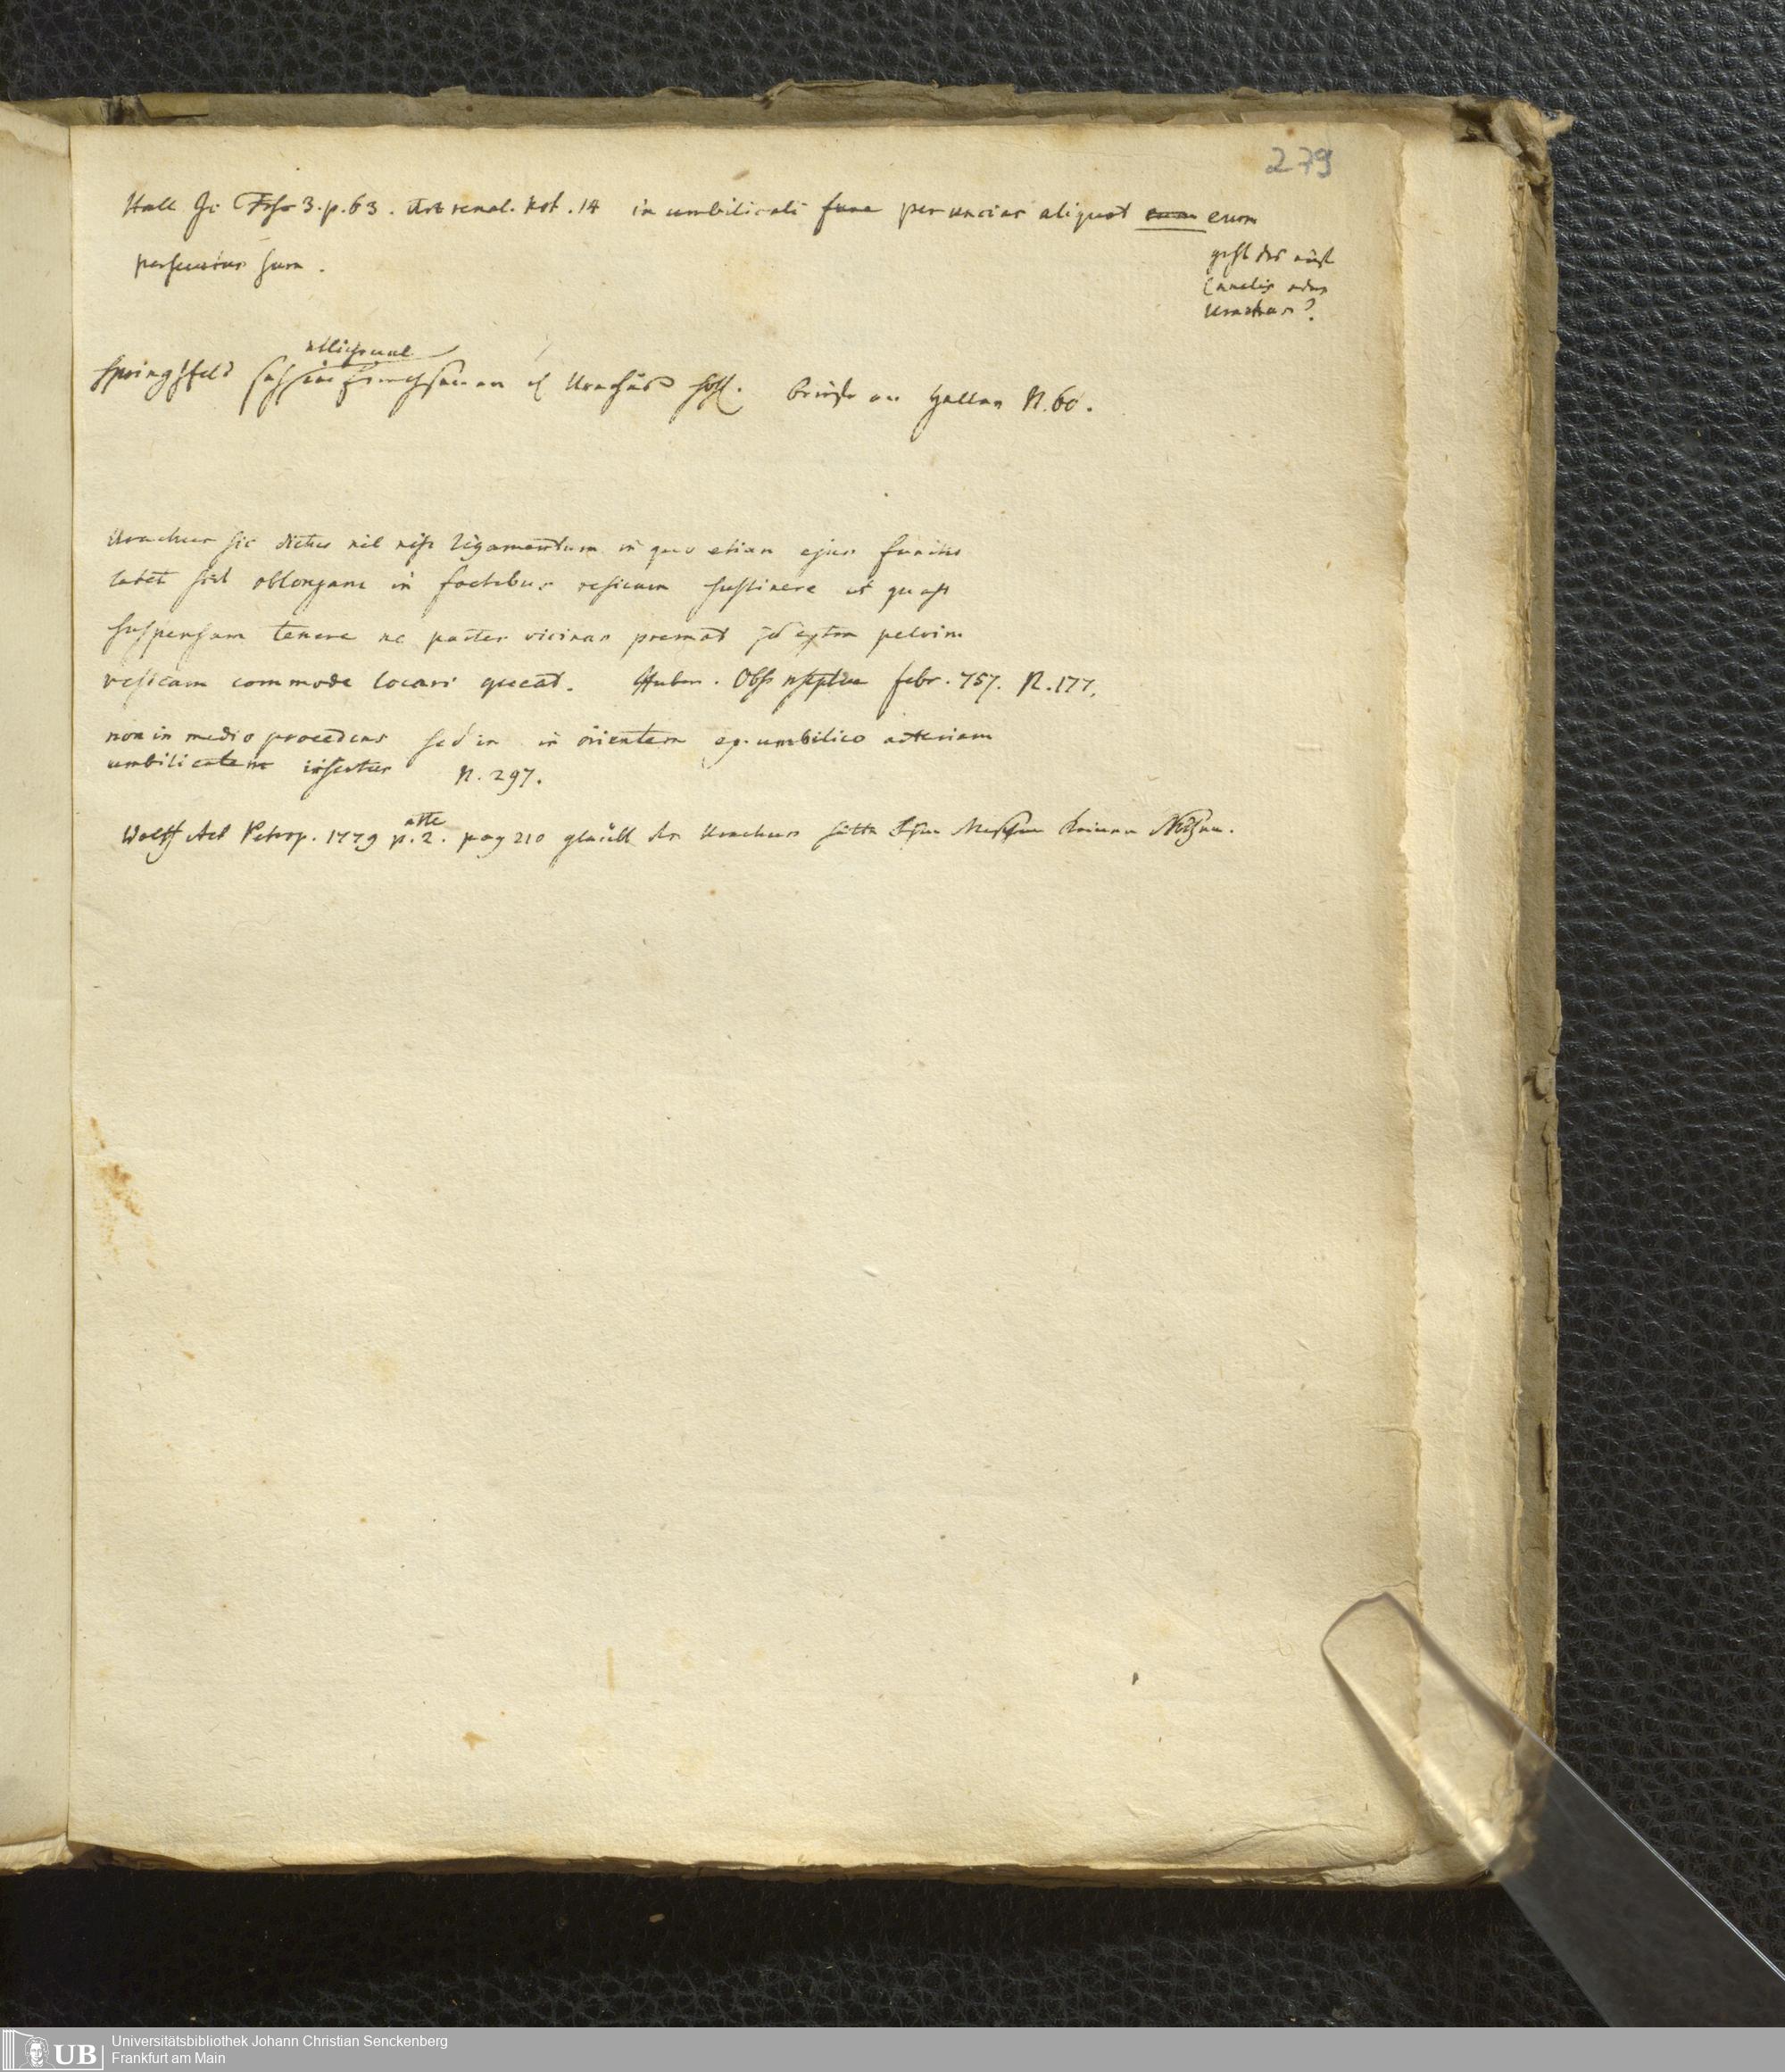 279
Hall Ic Fasc 3. p. 63. Art renal. Not. 14 in umbilicali fune per uncias aliquot eum eum
persecutus sum.
geht das aufs
Canalis oder
Urachus?
allignml
Springsfeld Urachus Briefe an Haller N. 60.
Urachus sic dictus nil nisi ligamentum in quo etiam ejus functio
latet sed oblongam in foetibus vesicam sustinere et quasi
suspensam tenere ne partes vicinas premat extra pelvim
vesicam commode locari queat. Huber. Obs febr. 757. N. 177.
non in medio procedens sed in orientem ex umbilico arteriam
umbilicalem inseritur N. 297.
atte
Wolff Act Petrop. 1779 p. 2. pag 210 glaubt der Urachus hätte beym Menschen keinen Nutzen.
UB Universitätsbibliothek Johann Christian Senckenberg
Frankfurt am Main